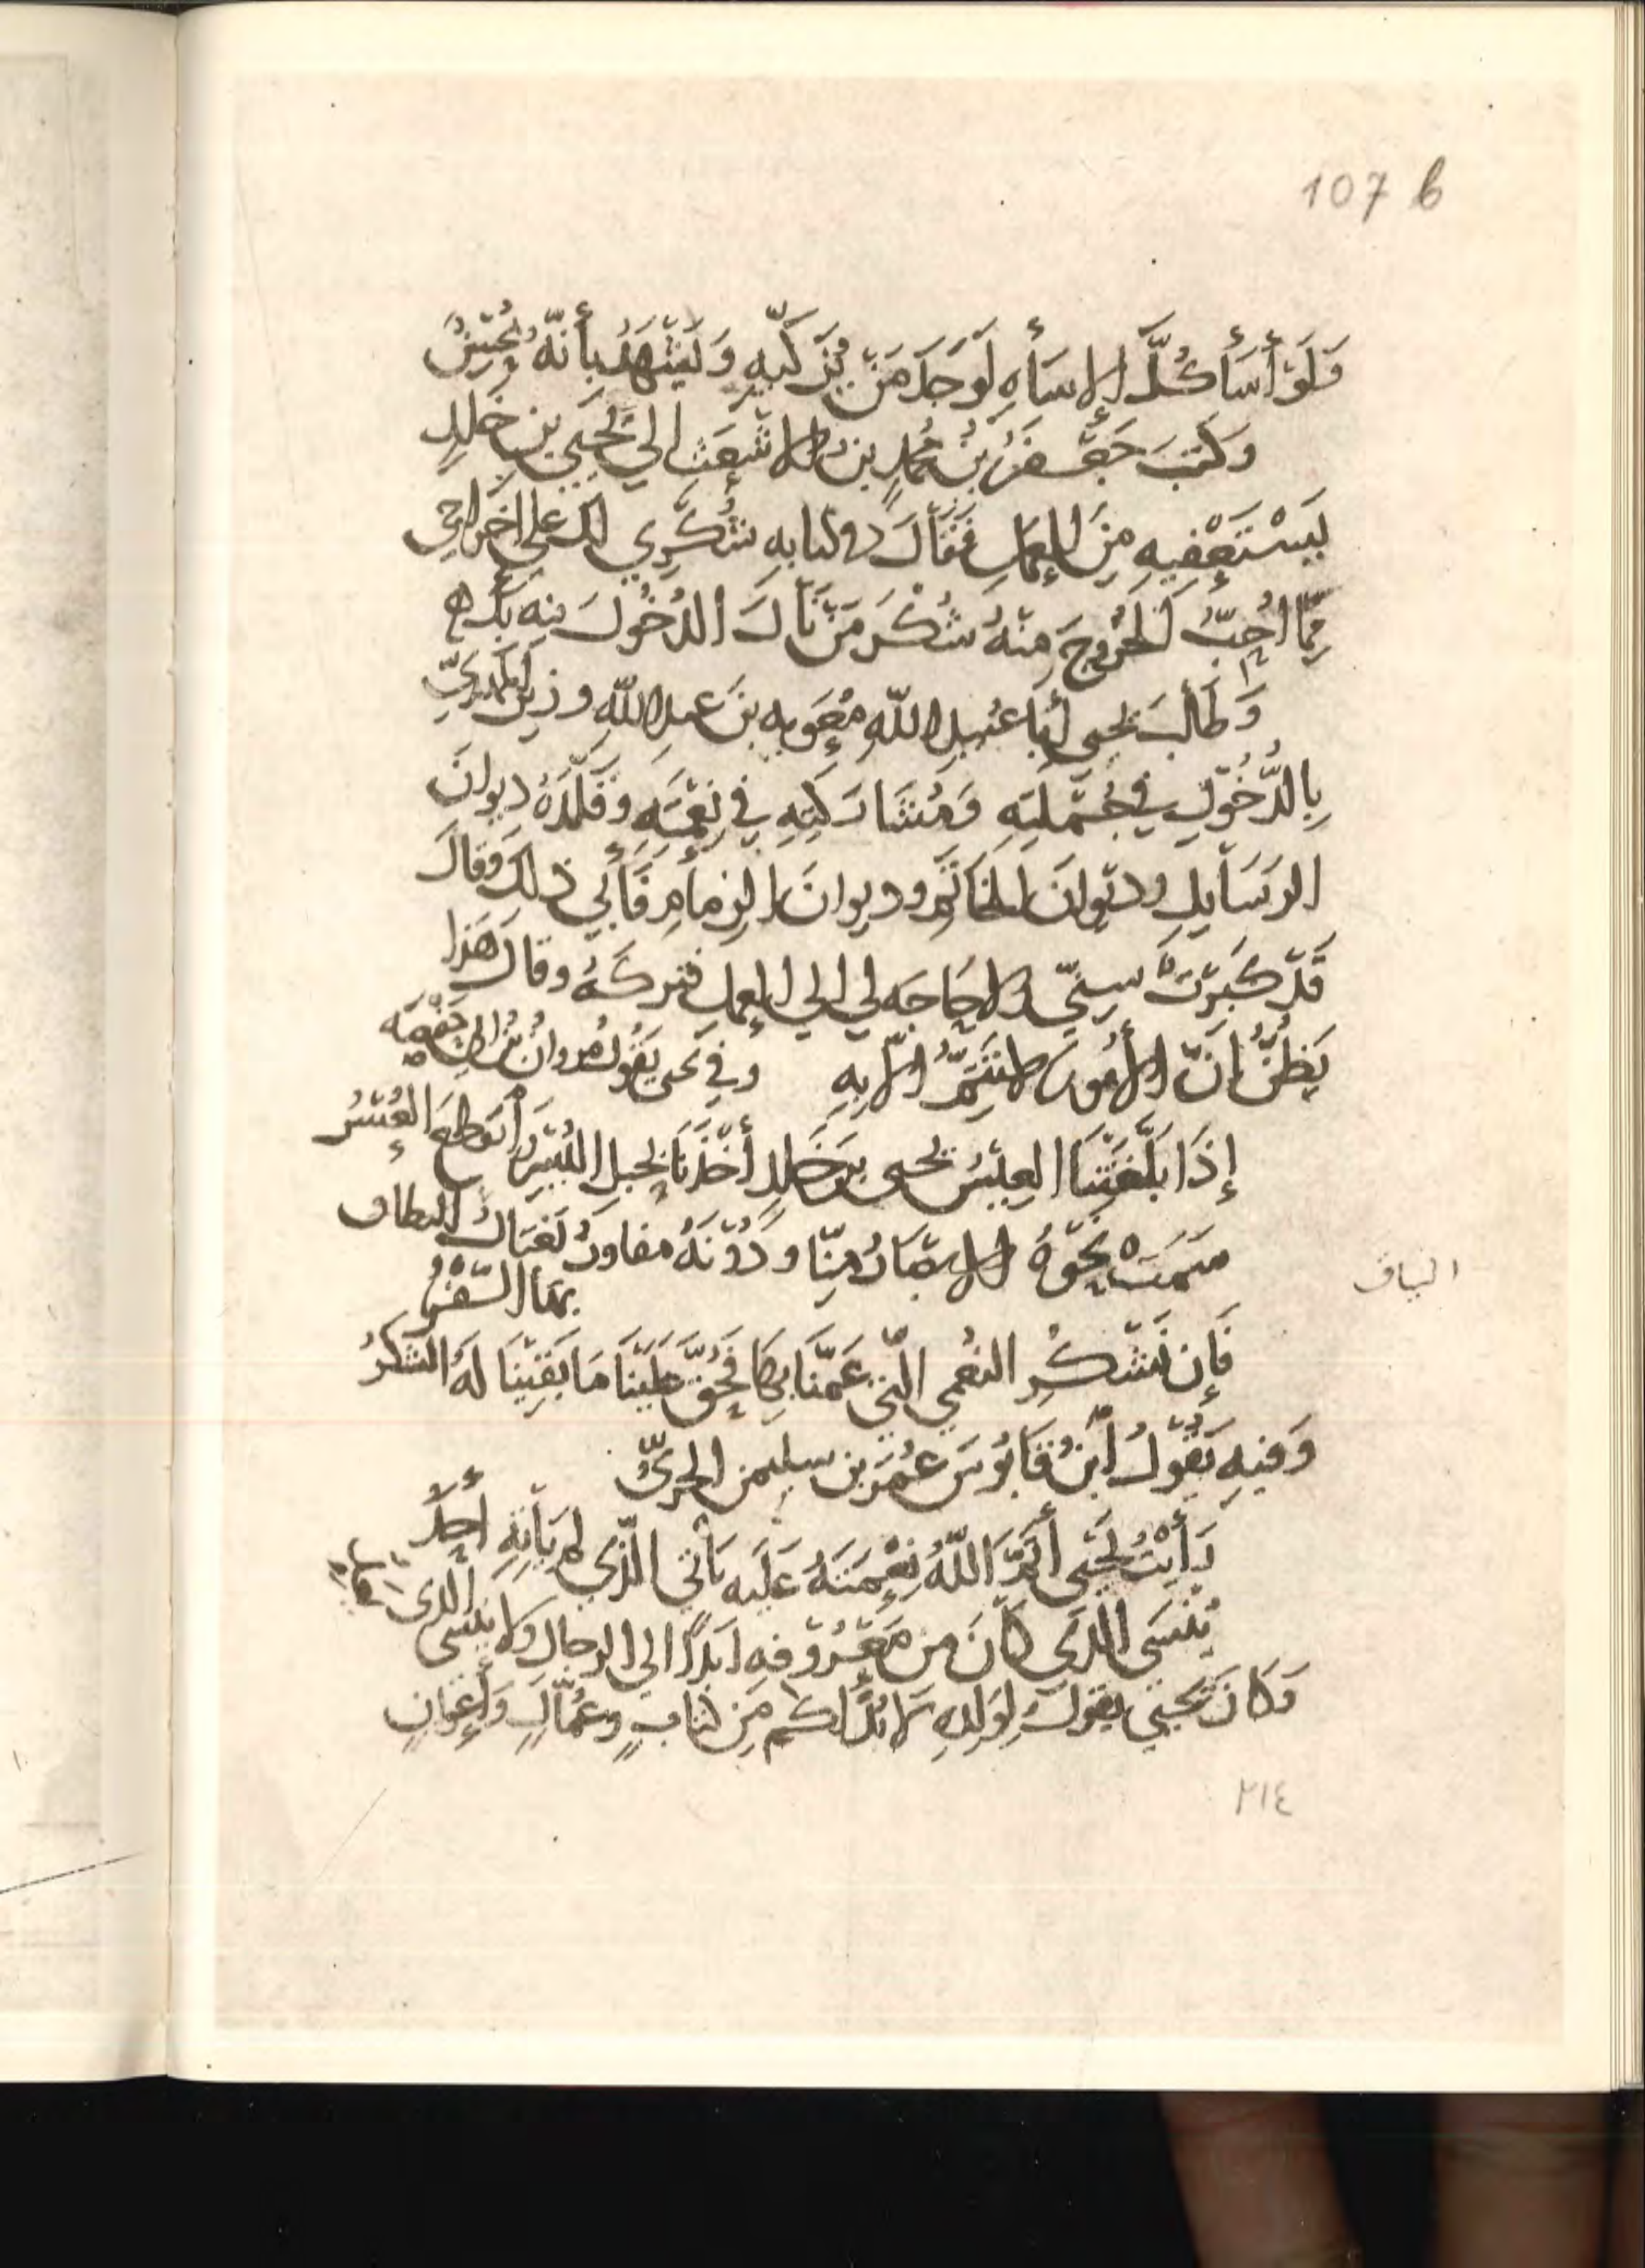 107 b
وَلَوْ أَسَأَ كُلَّ الإِسَأهِ لَوَجَدَ مَنْ يُزَكِّيهِ وَيَشْهَدُ بِأَنَّهُ مُحْسِنٌ
وَكَتَبَ جَعْفَرُ بْنُ مُحَمَّدٍ بن الاشْعَثِ الي يَحْيَى بنِ خَلِدٍ
يَسْتَعْفِيهِ مِنَ العَمَلِ فَقَالَ في كتابه شُكْرِي لك على اخراجي
مِمَّا اُحِبُّ الخُرُوجَ مِنْهُ شُكْرَ مَنْ نَالَ الدُخُولَ فيه بك
وَطَالَبَ يحيى أَبَا عُبيدِ اللّهِ مُعَوِيه بنَ عبدِ اللّهِ وزيرَ المَهْدِيِّ
بِالدُّخُوْلِ في جُمْلَتِهِ وَمُشَارَكَتِهِ في نِعْمَتِهِ وَقَلَّدَهُ ديوانَ
الرسَايلِ وديوانَ الخَاتَمِ وديوانَ الزِمامِ فَأَبي ذلك وَقالَ
قَدْ كَبَرَتْ سِنِّي ولا حَاجَه لي الي العمل فتركَهُ وقال هَذا
يَظُنُّ اَنَّ الأُمورَ لا تَتِمُّ الّا به وفي يحيى يَقُولُ مروانُ بنُ ابي حَفْصَه
إِذَا بَلَّغَتْنَا العِيْسُ يحيى بن خَلِدٍ أَخَذْنَا بحبلِ اليُسْرِ وَانْقَطَعَ العُسْرُ
سَمَتْ نَحْوَهُ الابصَارُ مِنّا ودُوْنَهُ مفاوزُ تَغْتَالُ النياف
بها السَّفْرُ
النياف
فَإِن نَشْكُرِ النُعْمَي الَّتي عَمَّنَا بِهَا فَحُقَّ عَلَيْنَا مَا بَقِيْنَا لَهُ الشُكْرُ
وَفيهِ يَقُوْلُ اَبْنُ قَابُوسَ عُمَرُ بن سليمن الحِيرِيُّ
رَأَيْتُ يَحْيَى أَتَمَّ اللّهُ نِعْمَتَهُ عَلَيه يَأتي الّذي لم يَأتِهِ أحدٌ
يَنْسَى الَّذي كَانَ مِن مَعْرُوْفِهِ أبدًا الى الرجال ولا يَنْسَى الَّذي
وَكَانَ يَحْيَى يقولُ لِوَلدِهِ لا بُدَّ لكم مِن كتابٍ وعُمَّالٍ وَأَعْوَانٍ
٢١٤